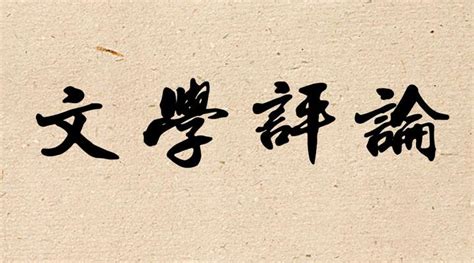 文學評論